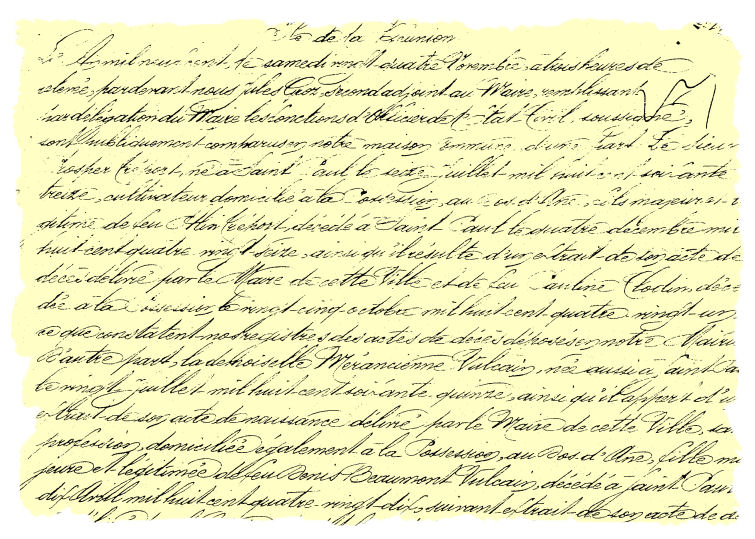 Ile de la Réunion
L'An mil neuf cent, le samedi vingt quatre Novembre, à trois heures de
relevée, pardevant nous Jules Crez, second adjoint au Maire, remplissant
par délégation du Maire les fonctions d'Officier de l'Etat Civil, soussigné,
sont publiquement comparus en notre maison Commune d'une part Le sieur
Prosper Crésort, né à Saint Paul le seize juillet mil huit cent soixante
treize, cultivateur domicilié à la Possession, au Dos d'Ane, fils majeur et
gitime de feu décédé à Saint Paul le quatre décembre mil
huit cent quatre vingt seize, ainsi qu'il résulte d'un extrait de son acte de
décès délivré par le Maire de cette Ville et de feu Pauline Clodin, décé
dée à la Possession le vingt cinq octobre mil huit cent quatre vingt un,
ce que constatent nos registres des actes de décès déposés en notre Mairie
D'autre part, la demoiselle Mérancienne Vulcain, née aussi à Saint Pa
le vingt juillet mil huit cent soixante quinze, ainsi qu'il appert d'u
extrait de son acte de naissance délivré par le Maire de cette Ville, sa
profession, domiciliée également à la Possession, au Dos d'Ane, fille m
jeure et légitimée de feu Denis Beaumont Vulcain, décédé à Saint Paul
dix Avril mil huit cent quatre-vingt dix, suivant extrait de son acte de dé